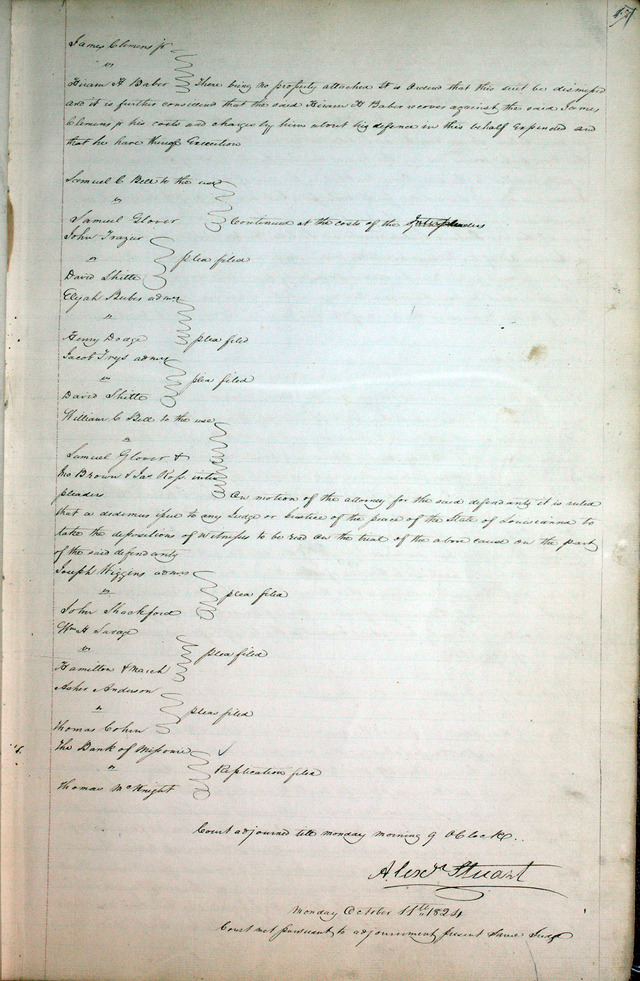 James Clemens jr
vs
Hiram H Baber There being no property attached It is Ordered that this suit be dismissed
and it is further considered that the said Hiram H Baber recover against the said James
Clemens jr his costs and charges by him about his defence in this behalf Expended and
that he have thereof Execution
Samuel C Bell to the use
vs
Samuel Glover Continued at the costs of the Interpleaders
John Frazier
vs plea filed
David Shitte
Elijah admr
vs
Henry Dodge plea filed
Jacob Frys admr
vs plea filed
David Shitte
William C Bell to the use
vs
Samuel Glover &
Jno Brown & Jas Ross inter
pleaders On motion of the attorney for the said defendants it is ruled
that a dedimus issue to any Judge or Justice of the peace of the State of Louisianna to
take the depositions of Witnesses to be read on the trial of the above cause on the part
of the said defendants
Joseph Wiggins admr
vs plea filed
John Shackford
Wm H Savage
vs plea filed
Hamilton & March
Asher Anderson
vs pleas filed
Thomas Cohen
The Bank of Missouri
vs Replication filed
Thomas McKnight
Court adjourned till monday morning 9 OClock.
Alexr Stuart
Monday October 11th 1824
Court met pursuant to adjournment present Same Judge